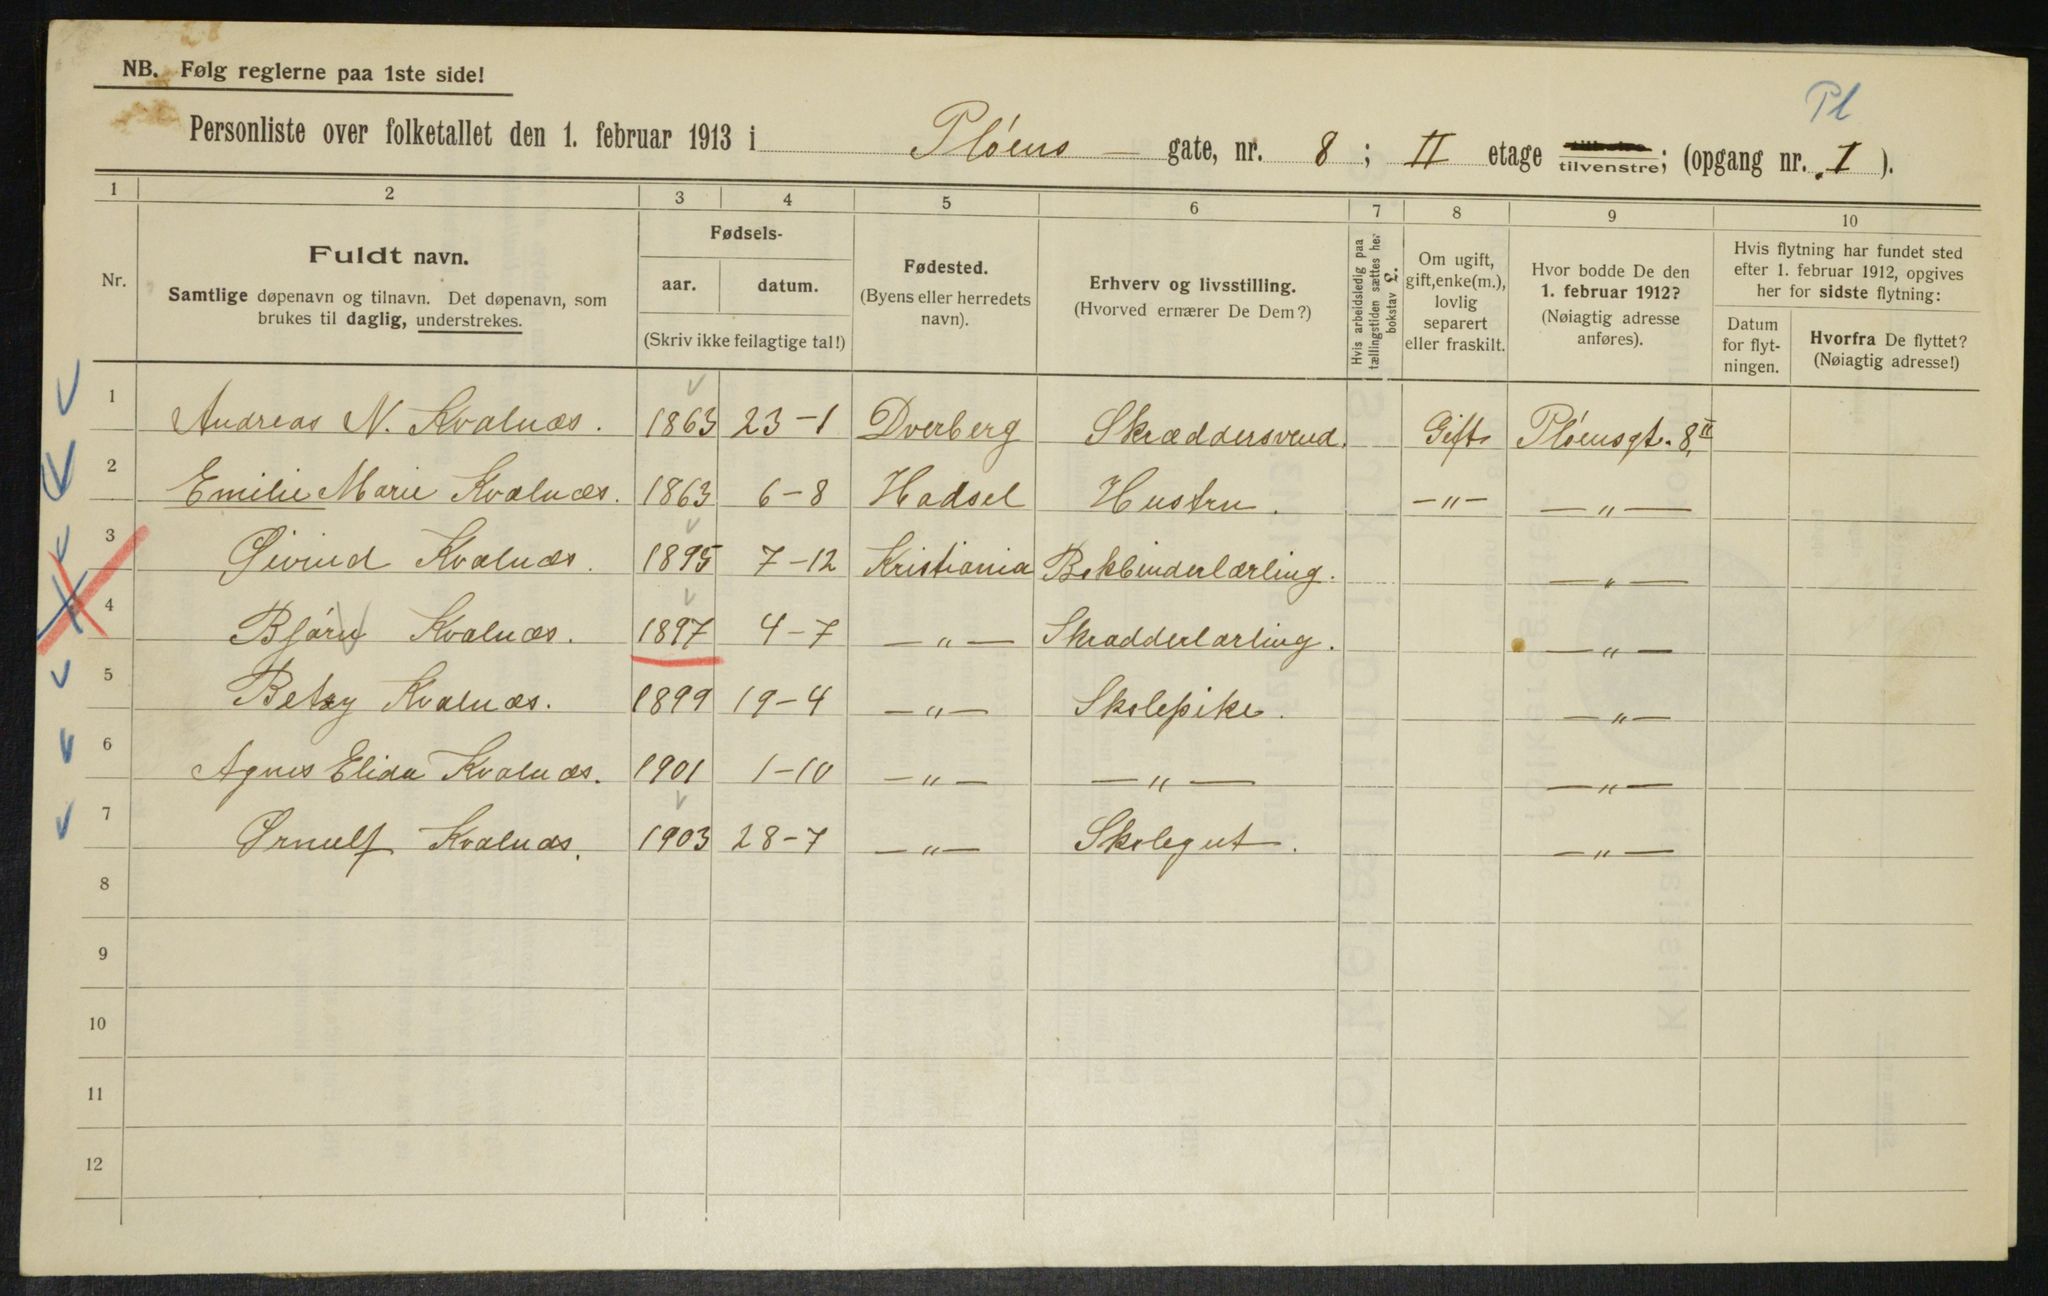 Pl
NB. Følg reglerne paa 1ste side!
Personliste over folketallet den 1. februar 1913 i Plóens — gate, nr. 8 ; II etage tilvenstre; (opgang nr. I ).
1 2 3 4 5 6 7 8 9 10
Nr.
Fuldt navn.
Samtlige døpenavn og tilnavn. Det døpenavn, som
brukes til daglig, understrekes.
Fødsels-
aar. datum.
(Skriv ikke feilagtige tal!)
Fødested.
(Byens eller herredets
navn).
Erhverv og livsstilling.
(Hvorved ernærer De Dem?)
Hvis arbeidsledig paa
tællingstiden sættes her
bokstav L.
Om ugift,
gift, enke(m.),
lovlig
separert
eller fraskilt.
Hvor bodde De den
1. februar 1912?
(Nøiagtig adresse
anføres).
Hvis flytning har fundet sted
efter 1. februar 1912, opgives
her for sidste flytning:
Datum
for flyt-
ningen.
Hvorfra De flyttet?
(Nøiagtig adresse!)
1 Andreas N. Kvalnæs. 1863 23-1 Dverberg Skræddersvend. Gift Plóensgt. 8, II
2 Emilie Marie Kvalnæs. 1863 6-8 Hadsel Hustru. —"— —"—
3 Øivind Kvalnæs. 1895 7-12 Kristiania Bokbinderlærling. —"—
4 Bjórn Kvalnæs. 1897 4-7 —"— Skradderlærling. —"—
5 Betzy Kvalnæs. 1899 19-4 —"— Skolepike. —"—
6 Agnes Elida Kvalnæs. 1901 1-10 —"— —"— —"—
7 Ørnulf Kvalnæs. 1903 28-7 —"— Skolegut. —"—
8
9
10
11
12